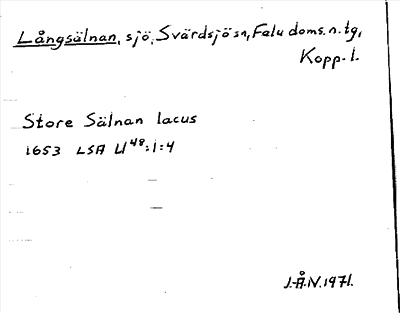 Långsälnan, sjö, Svärdsjö sn, Falu doms. n. tg,
Kopp. l.
Store Sälnan lacus
1653 LSA U⁴⁸:1:4
J.Å.N. 1971.